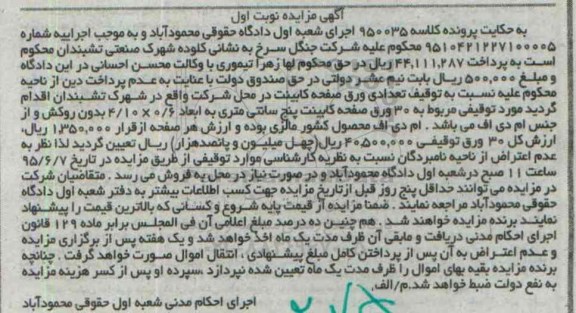 آگهی مزایده نوبت اول
به حکایت پرونده کلاسه ۹۵۰۰۳۵ اجرای شعبه اول دادگاه حقوقی محمودآباد و به موجب اجراییه شماره
۹۵۱۰۴۲۱۲۲۷۱۰۰۰۰۵ محکوم علیه شرکت جنگل سرخ به نشانی کلوده شهرک صنعتی تشبندان محکوم
است به پرداخت ۴۴,۱۱۱,۲۸۷ ریال در حق محکوم لها زهرا تیموری با وکالت محسن احسانی در این دادگاه
و مبلغ ۵۰۰,۰۰۰ ریال بابت نیم عشر دولتی در حق صندوق دولت با عنایت به عدم پرداخت دین از ناحیه
محکوم علیه نسبت به توقیف تعدادی ورق صفحه کابینت در محل شرکت واقع در شهرک تشبندان اقدام
گردید مورد توقیفی مربوط به ۳۰ ورق صفحه کابینت پنج سانتی متری به ابعاد ۰/۶ × ۴/۱۰ بدون روکش و از
جنس ام دی اف می باشد . ام دی اف محصول کشور مالزی بوده و ارزش هر صفحه از قرار ۱,۳۵۰,۰۰۰ ریال،
ارزش کل ۳۰ ورق توقیفی ۴۰,۵۰۰,۰۰۰ ریال(چهل میلیون و پانصدهزار) ریال تعیین گردید لذا نظر به
عدم اعتراض از ناحیه نامبردگان نسبت به نظریه کارشناسی موارد توقیفی از طریق مزایده در تاریخ ۹۵/۶/۷
ساعت ۱۱ صبح در شعبه اول دادگاه محمودآباد و در صورت نیاز در محل به فروش می رسد . متقاضیان شرکت
در مزایده می توانند حداقل پنج روز قبل از تاریخ مزایده جهت کسب اطلاعات بیشتر به دفتر شعبه اول دادگاه
حقوقی محمودآباد مراجعه نمایند . ضمنا مزایده از قیمت پایه شروع و کسانی که بالاترین قیمت را پیشنهاد
نمایند برنده مزایده خواهند شد . هم چنین ده درصد مبلغ اعلامی آن فی المجلس برابر ماده ۱۲۹ قانون
اجرای احکام مدنی دریافت و مابقی آن ظرف مدت یک ماه اخذ خواهد شد و یک هفته پس از برگزاری مزایده
و عدم اعتراض به آن پس از پرداختن کامل مبلغ پیشنهادی ، انتقال اموال صورت خواهد گرفت . چنانچه
برنده مزایده بقیه بهای اموال را ظرف مدت یک ماه تعیین شده نپردازد ،سپرده او پس از کسر هزینه مزایده
به نفع دولت ضبط خواهد شد.م/الف.
اجرای احکام مدنی شعبه اول حقوقی محمودآباد